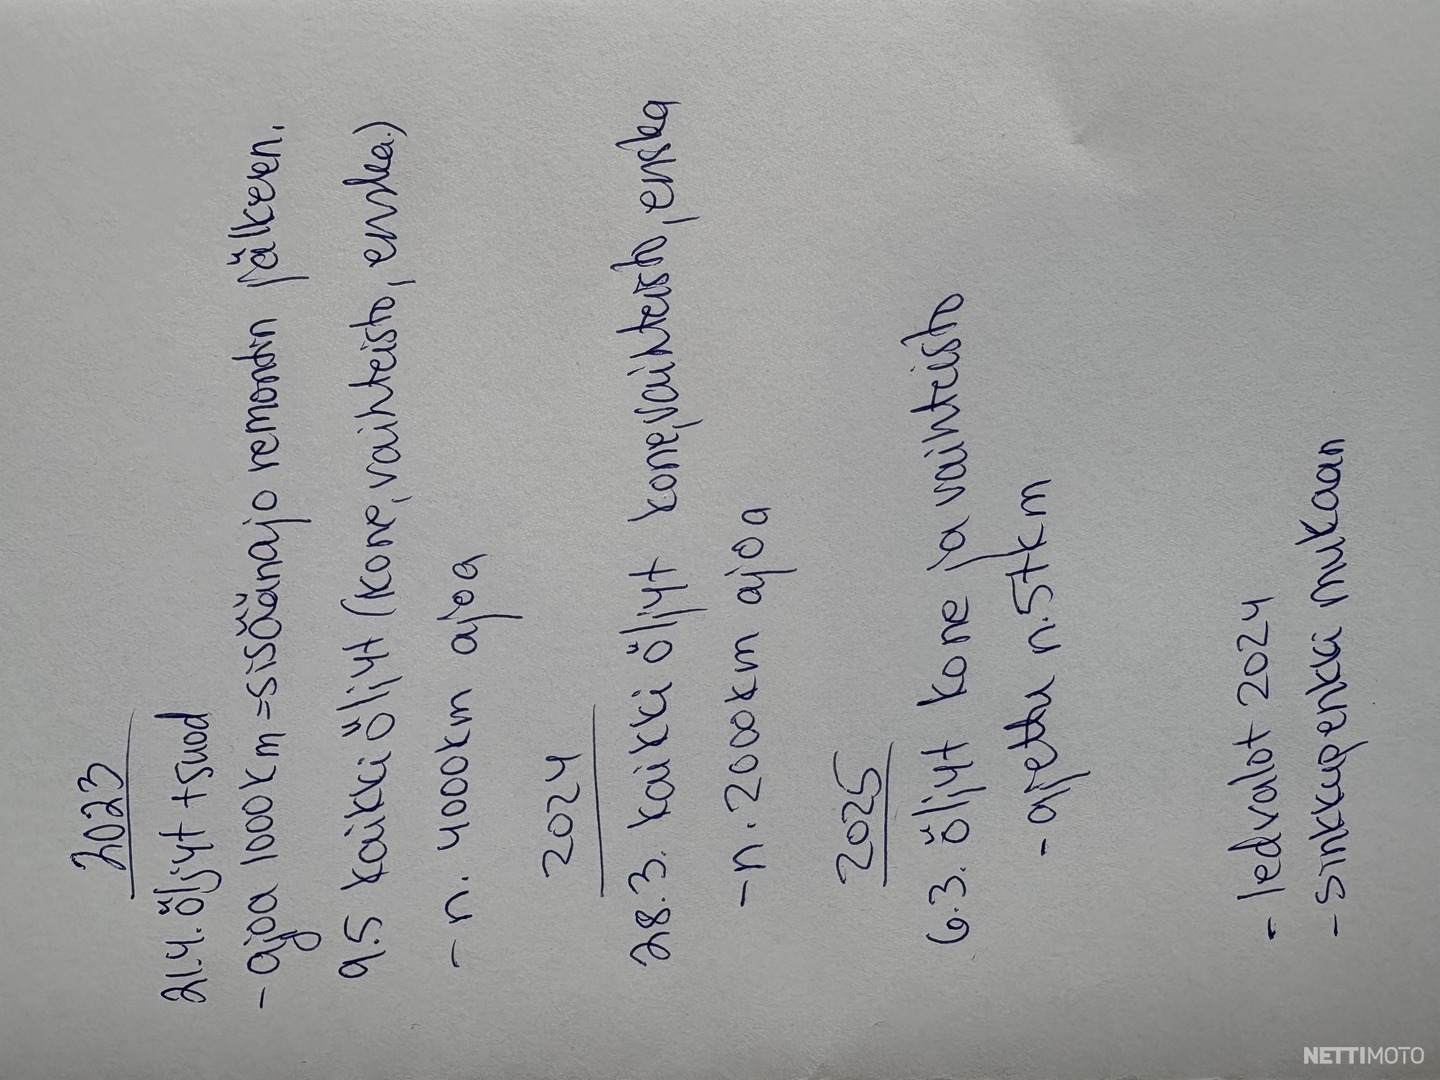 2023
21.4. öljyt + suod
- ajoa 1000km = sisäänajo remontin jälkeen.
9.5 kaikki öljyt (kone, vaihteisto, enska.)
- n. 4000km ajoa
2024
28.3. kaikki öljyt kone, vaihteisto, enska
- n. 2000km ajoa
2025
6.3. öljyt kone ja vaihteisto
- ajettu n. 5tkm
- ledvalot 2024
- sinkkupenkki mukaan
NETTIMOTO